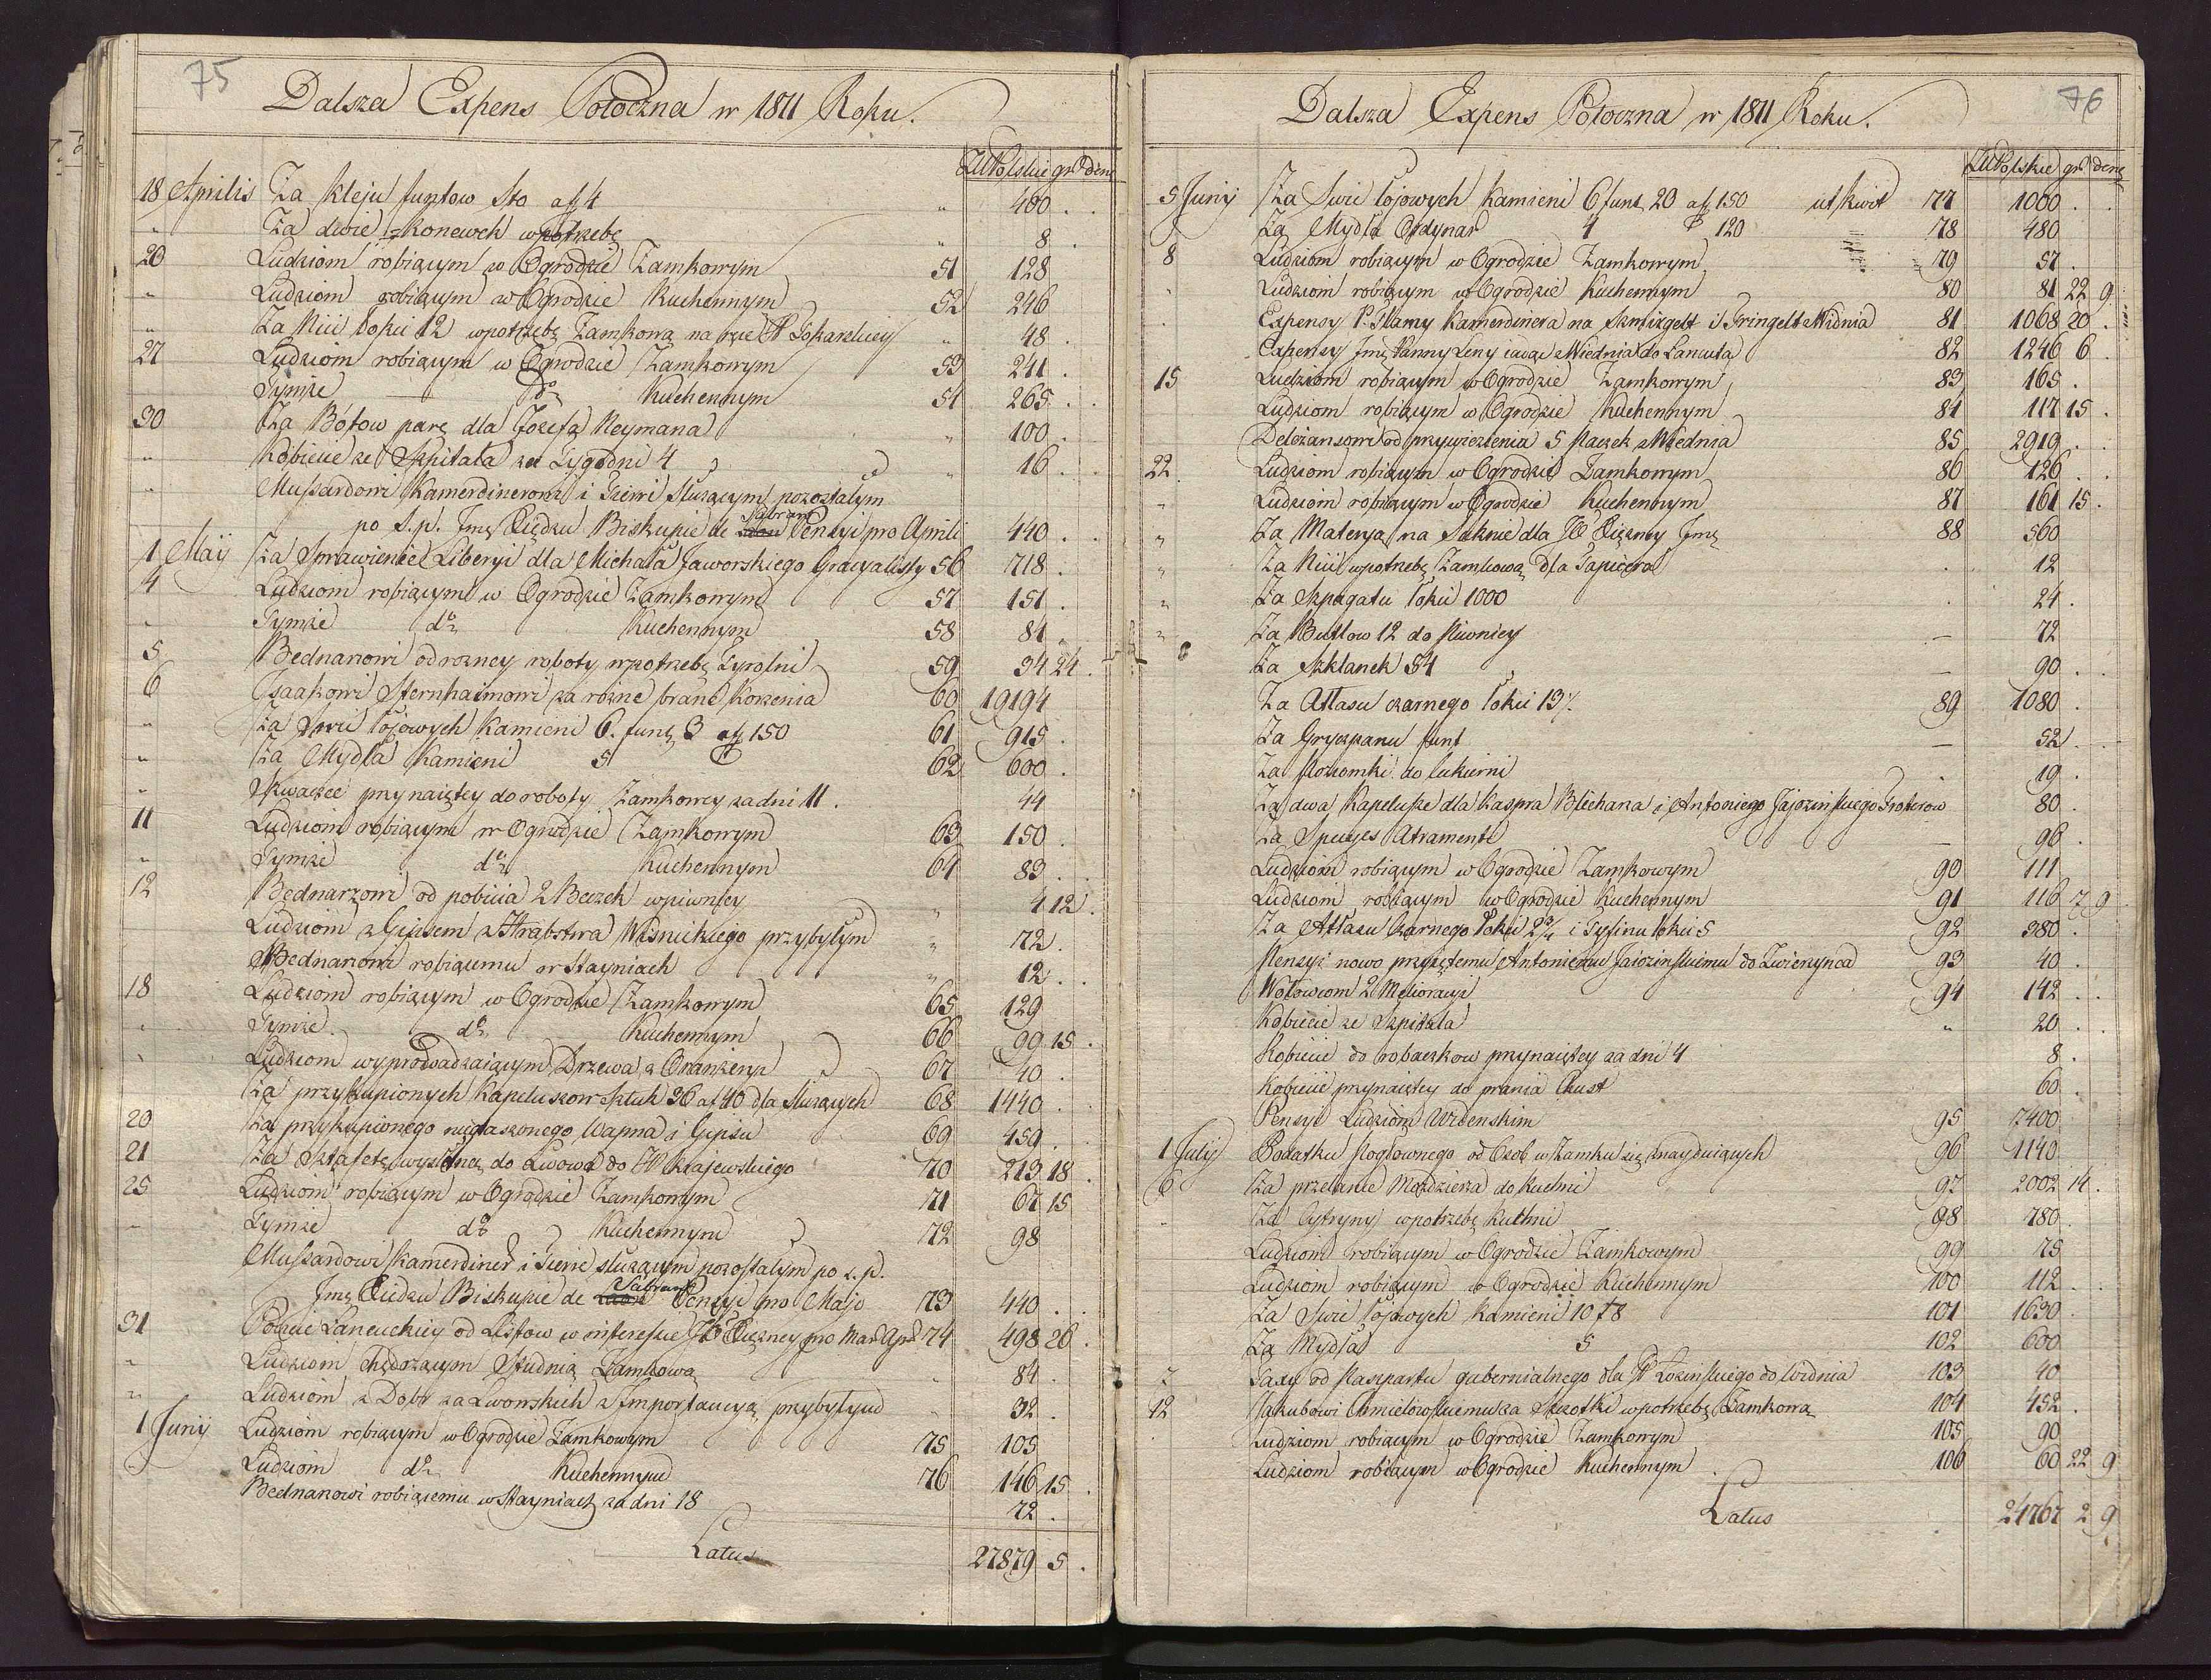 75
Dalsza Expens Potoczna w 1811 Roku.
ZłłPolskie gr den
18 Aprilis Za Kleju funtow Sto a f 4 " 400 . .
" Za dwie Konewek w potrzebę " 8 .
20 Ludziom robiącym w Ogrodzie Zamkowym 51 128
" Ludziom robiącym w Ogrodzie Kuchennym 52 246
" Za Nici łokci 12 w potrzebę Zamkową na ręce JP " 48 .
27 Ludziom robiącym w Ogrodzie Zamkowym 53 241 .
Tymże do Kuchennym 54 265 . .
30 Za Bótow parę dla Jozefa Neymana " 100 .
" Kobiecie ze Szpitala za Tygodni 4 " 16 . .
" Mussardowi Kamerdinerowi i Służącym pozostałym
po s. p. Jmę Xiędzu Biskupie de Sabran Pensyi pro Aprili 440 . .
1 Maij Za Sprawienie Liberyi dla Michała Jaworskiego Gracyalisty 56 718 .
4 Ludziom robiącym w Ogrodzie Zamkowym 57 151 .
" Tymże do Kuchennym 58 84 "
5 Bednarzowi od rozney roboty w potrzebę 59 34 24 .
6 Isaakowi Sternhaimowi za rożne brane Korzenia 60 19194
" Za Swic łojowych Kamieni 6. funt 3 a f 150 61 915 .
" Za Mydła Kamieni 5 62 600 .
" przynaiętey do roboty Zamkowey za dni 11 . 44
11 Ludziom robiącym w Ogrodzie Zamkowym 63 150 .
" Tymże do Kuchennym 64 83 . .
12 Bednarzowi od pobicia 2 Beczek w piwnicy " 4 12 .
Ludziom z Gipsem z Hrabstwa Wisnickiego przybyłym " 72 .
Bednarzowi robiącemu w Stayniach " 12 . .
18 Ludziom robiącym w Ogrodzie Zamkowym 65 129
" Tymże do Kuchennym 66 99 15 .
" Ludziom wyprowadzaiącym Drzewa z Oranżeryi 67 40 .
Za przykupionych Kapeluszow sztuk 36 a f 40 dla Służących 68 1440 .
20 Za przykupionego niegaszonego Wapna i Gipsu 69 459 . .
21 Za Sztafetę wysłaną do Lwowa do JP Krajewskiego 70 213 18 .
25 Ludziom robiącym w Ogrodzie Zamkowym 71 67 15
" Tymże do Kuchennym 72 98
Mussardowi Kamerdiner i służącym pozostałym po s. p.
Jmę Xiedzu Biskupie de Sabran Pensyi pro Majo 73 440 . .
31 Poczcie Łancuckiey od Listow w interesie JO Xiężney pro Mar Apr 74 498 26 .
" Ludziom chędożącym Studnią Zamkową " 84 .
" Ludziom z Dobr za Lwowskich z Importancyą przybyłym " 32 .
1 Junij Ludziom robiącym w Ogrodzie Zamkowym 75 105
" Ludziom do Kuchennym 76 146 15 .
Bednarzowi robiącemu w Stayniach za dni 18 72 .
Latus 27879 5 .
76
Dalsza Expens Potoczna w 1811 Roku.
ZłłPolskie gr den
5 Junij Za Swic łojowych Kamieni 6 funt 20 a f 150 ut kwit 77 1000 .
" Za Mydła Ordynar 4 120 78 480
8 Ludziom robiącym w Ogrodzie Zamkowym 79 57 .
. Ludziom robiącym w Ogrodzie Kuchennym 80 81 22 9
. Expensy P. Kamerdinera na i Wiednia 81 1068 20 .
. Expensy Jmę Panny Leny iadąc z Wiednia do Łancuta 82 1246 6 .
15 Ludziom robiącym w Ogrodzie Zamkowym 83 165 .
. Ludziom robiącym w Ogrodzie Kuchennym 84 117 15 .
Deliżansowi od przywiezienia 5 Paczek z Wiednia 85 2919 . .
22 Ludziom robiącym w Ogrodzie Zamkowym 86 126 . .
" Ludziom robiącym w Ogrodzie Kuchennym 87 161 15 .
" Za Materyą na Suknie dla JO Xiężney Jmę 88 560
" Za Nici w potrzebę Zamkową dla Tapicera . 12
" Za Szpagatu łokci 1000 . 24 .
" Za Butlow 12 do Piwnicy — 72
Za Szklanek 54 — 90 . .
Za Atłasu czarnego łokci 13½ 89 1080 .
Za Gryszpanu funt — 52 . .
Za Poziomki do Cukierni . 19 .
Za dwa Kapelusze dla Kaspra Blichara i Antoniego 80 .
Za Species Atramentu — 96 .
Ludziom robiącym w Ogrodzie Zamkowym 90 111
Ludziom robiącym w Ogrodzie Kuchennym 91 116 7 9
Za Atłasu Czarnego łokci 2¾ i łokci 5 92 380 .
Pensyi nowo przyiętemu Antoniemu do Zwierzynca 93 40 .
Wołowcom 2 Melioracyi 94 142 . .
Kobiecie ze Szpitala " 20 . .
Kobiecie do robaczkow przynaiętey za dni 4 8 .
Kobiecie przynaiętey do prania Chust 60 .
Pensyi Ludziom Widenskim 95 7400
1 Julij Podatku Pogłownego od Osob w Zamku się znayduiących 96 1140
6 Za przelanie Mozdzierza do Kuchni 97 2002 14 .
Za Cytryny w potrzebę Kuchni 98 780
Ludziom robiącym w Ogrodzie Zamkowym 99 75
Ludziom robiącym w Ogrodzie Kuchennym 100 112 . .
Za Swic łojowych Kamieni 10 f 8 101 1630 .
Za Mydła 5 102 600
Taxy od Paszportu gubernialnego dla JP do Widnia 103 40
12 Jakubowi Chmielowskiemu za Szczotki w potrzebę Zamkową 104 452 .
. Ludziom robiącym w Ogrodzie Zamkowym 105 90
Ludziom robiącym w Ogrodzie Kuchennym . 106 60 22 9
Latus 24767 2 9